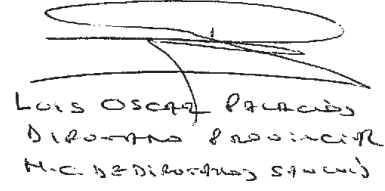 LUIS OSCAR PALACIOS
DIPUTADO PROVINCIAL
H.C. DE DIPUTADOS SAN LUIS